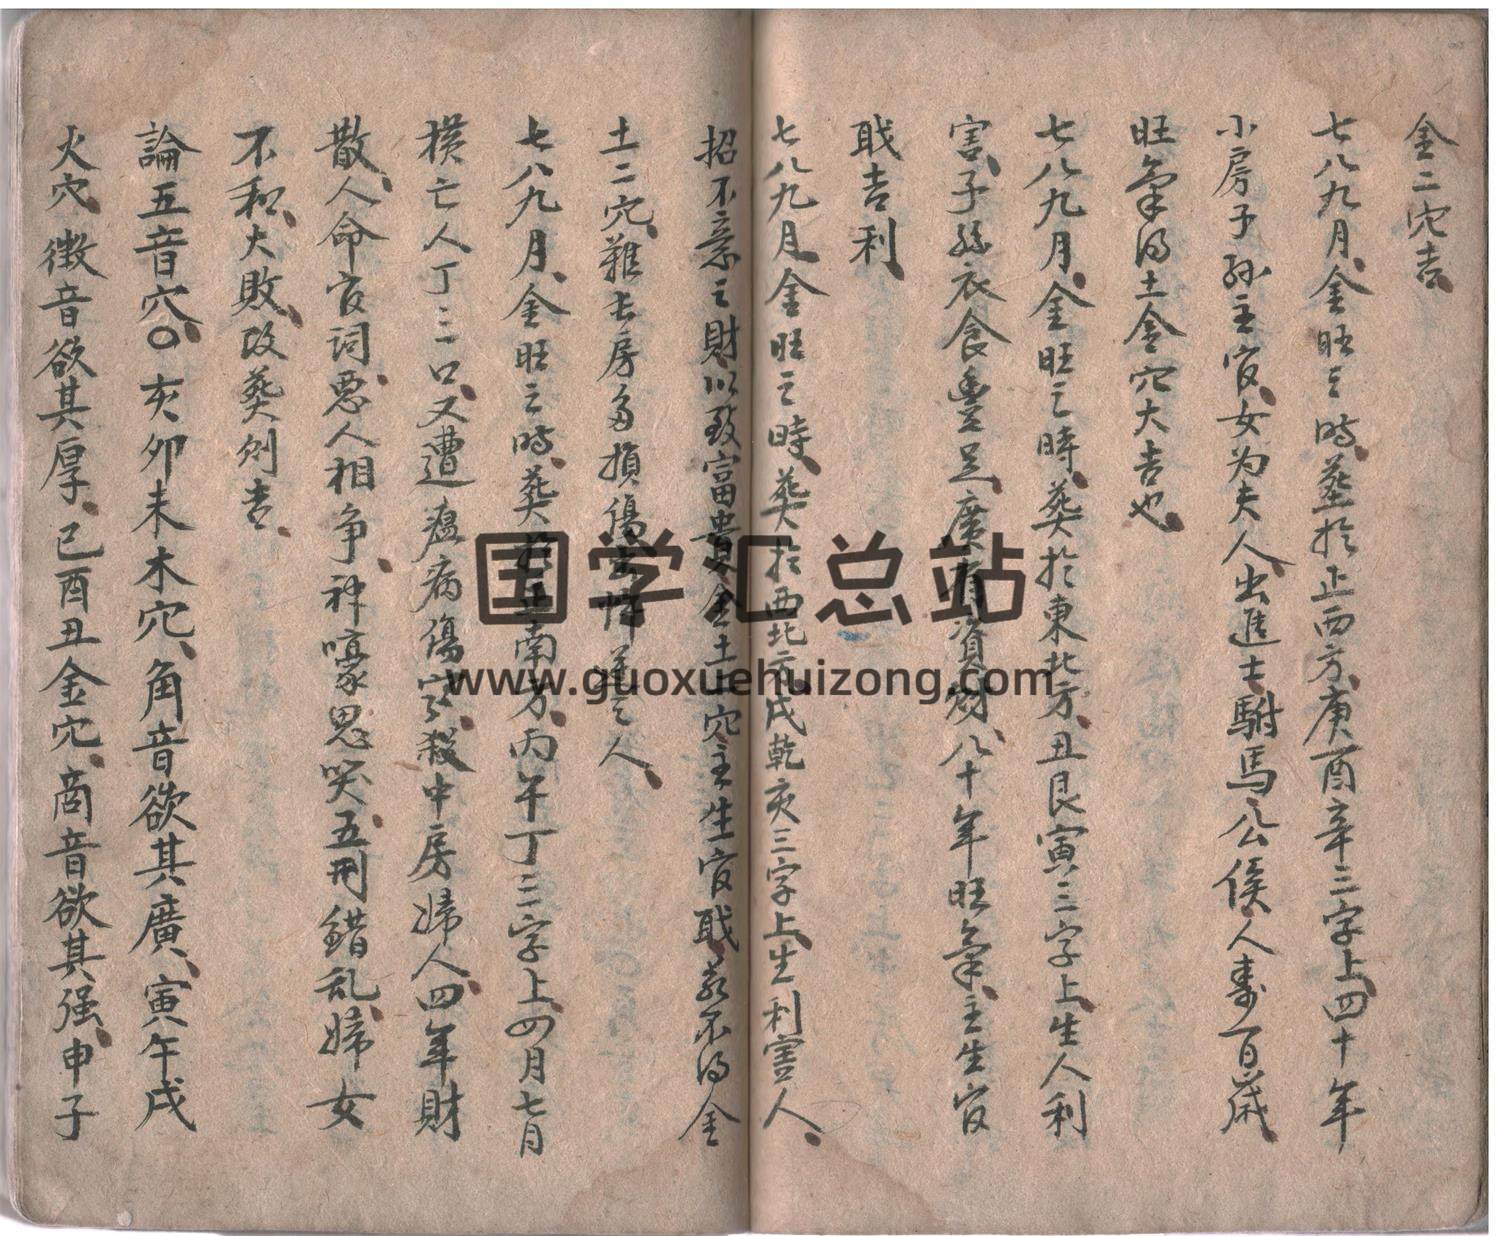 金二穴吉
七八九月金旺之時葬於正西方庚酉辛三字上四十年
小房子孙主官女为夫人出進士駙馬公侯人壽百歲
旺氣得土金穴大吉也
七八九月金旺之時葬於東北方丑艮寅三字上生人利
害子孫衣食豊足廣有資財八十年旺氣主生官
职吉利
七八九月金旺之時葬於西北方戌乾亥三字上生利害人
招不意之財以致富貴金土穴主生官职若不得金
土二穴難長房多損傷人
七八九月金旺之時葬於正南方丙午丁三字上四月七月
橫亡人丁二三口又遭瘟病傷害殺中房婦人四年財
散人命官詞惡人相争神嚎思哭五刑錯乱婦女
不和大敗改葬則吉
論五音穴〇亥卯未木穴角音欲其廣寅午戌
火穴徵音欲其厚巳酉丑金穴商音欲其强申子
国学汇总站
www.guoxuehuizong.com